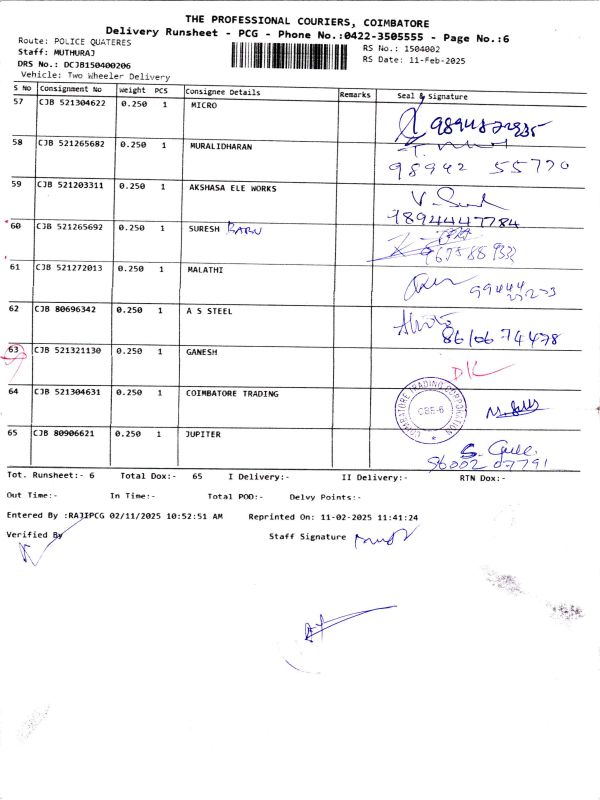 THE PROFESSIONAL COURIERS, COIMBATORE
Delivery Runsheet - PCG - Phone No.:0422-3505555 - Page No.:6
Route: POLICE QUATERES RS No.: 1504002
Staff: MUTHURAJ RS Date: 11-Feb-2025
DRS No.: DCJB150400206
Vehicle: Two Wheeler Delivery
S No Consignment No Weight PCS Consignee Details Remarks Seal & Signature
57 CJB 521304622 0.250 1 MICRO
58 CJB 521265682 0.250 1 MURALIDHARAN
98942 55770
59 CJB 521203311 0.250 1 AKSHASA ELE WORKS
9894447784
60 CJB 521265692 0.250 1 SURESH BABU
61 CJB 521272013 0.250 1 MALATHI
62 CJB 80696342 0.250 1 A S STEEL
86106 74478
63 CJB 521321130 0.250 1 GANESH
DK
64 CJB 521304631 0.250 1 COIMBATORE TRADING
COIMBATORE TRADING CORPORATION
CBE-6
65 CJB 80906621 0.250 1 JUPITER
96002 07791
Tot. Runsheet:- 6 Total Dox:- 65 I Delivery:- II Delivery:- RTN Dox:-
Out Time:- In Time:- Total POD:- Delvy Points:-
Entered By :RAJIPCG 02/11/2025 10:52:51 AM Reprinted On: 11-02-2025 11:41:24
Verified By Staff Signature